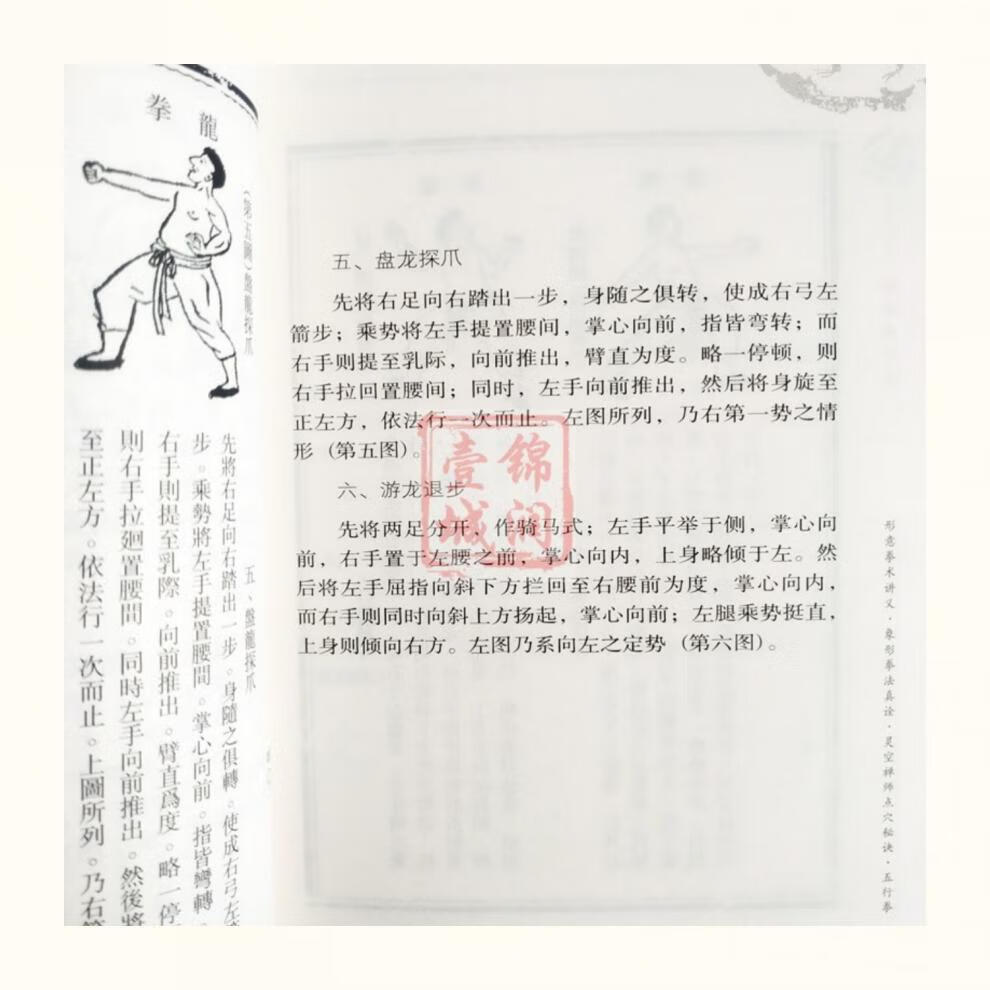 龍拳
（第五圖）盤龍探爪
五、盤龍探爪
先將右足向右踏出一步。身隨之俱轉。使成右弓左
步。乘勢將左手提置腰間。掌心向前。指皆彎轉
右手則提至乳際。向前推出。臂直爲度。略一停
則右手拉廻置腰間。同時左手向前推出。然後將
至正左方。依法行一次而止。上圖所列。乃右第
五、盘龙探爪
先将右足向右踏出一步，身随之俱转，使成右弓左
箭步；乘势将左手提置腰间，掌心向前，指皆弯转；而
右手则提至乳际，向前推出，臂直为度。略一停顿，则
右手拉回置腰间；同时，左手向前推出，然后将身旋至
正左方，依法行一次而止。左图所列，乃右第一势之情
形（第五图）。
六、游龙退步
先将两足分开，作骑马式；左手平举于侧，掌心向
前，右手置于左腰之前，掌心向内，上身略倾于左。然
后将左手屈指向斜下方拦回至右腰前为度，掌心向内，
而右手则同时向斜上方扬起，掌心向前；左腿乘势挺直，
上身则倾向右方。左图乃系向左之定势（第六图）。
锦润
壹城
形意拳术讲义·象形拳法真诠·灵空禅师点穴秘诀·五行拳